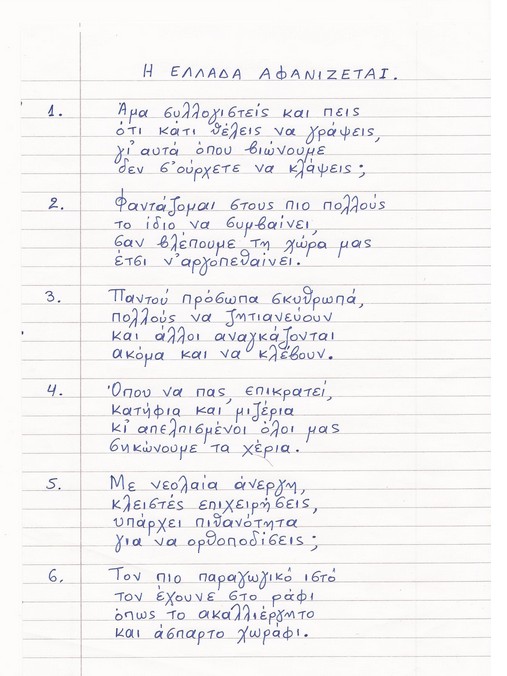 Η ΕΛΛΑΔΑ ΑΦΑΝΙΖΕΤΑΙ.
1. Άμα συλλογιστείς και πεις
ότι κάτι θέλεις να γράψεις,
γι' αυτά όπου βιώνουμε
δεν σ' ούρχετε να κλάψεις;
2. Φαντάζομαι στους πιο πολλούς
το ίδιο να συμβαίνει,
σαν βλέπουμε τη χώρα μας
έτσι ν' αργοπεθαίνει.
3. Παντού πρόσωπα σκυθρωπά,
πολλούς να ζητιανεύουν
και άλλοι αναγκάζονται
ακόμα και να κλέβουν.
4. Όπου να πας, επικρατεί,
κατήφια και μιζέρια
κι' απελπισμένοι όλοι μας
σηκώνουμε τα χέρια.
5. Με νεολαία άνεργη,
κλειστές επιχειρήσεις,
υπάρχει πιθανότητα
για να ορθοποδίσεις;
6. Τον πιο παραγωγικό ιστό
τον έχουνε στο ράφι
όπως το ακαλλιέργητο
και άσπαρτο χωράφι.